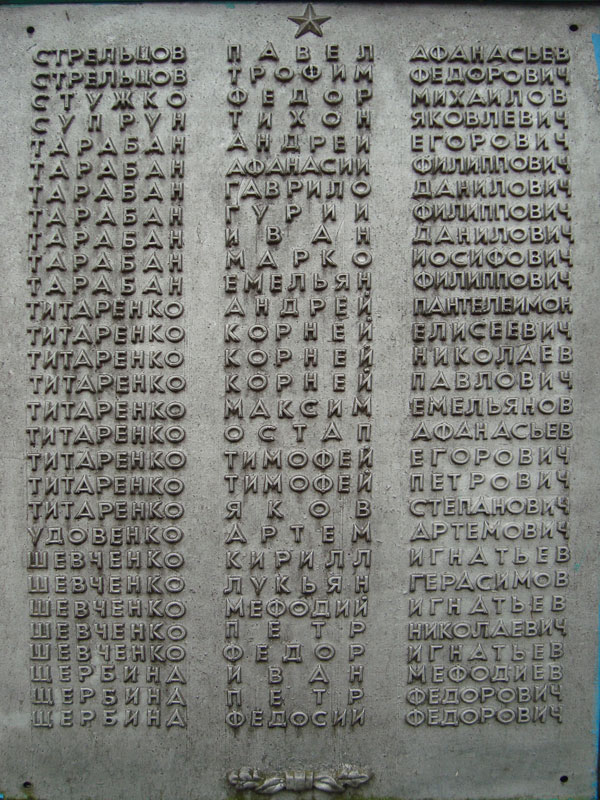 СТРЕЛЬЦОВ ПАВЕЛ АФАНАСЬЕВ
СТРЕЛЬЦОВ ТРОФИМ ФЕДОРОВИЧ
СТУЖКО ФЕДОР МИХАЙЛОВ
СУПРУН ТИХОН ЯКОВЛЕВИЧ
ТАРАБАН АНДРЕЙ ЕГОРОВИЧ
ТАРАБАН АФАНАСИИ ФИЛИППОВИЧ
ТАРАБАН ГАВРИЛО ДАНИЛОВИЧ
ТАРАБАН ГУРИИ ФИЛИППОВИЧ
ТАРАБАН ИВАН ДАНИЛОВИЧ
ТАРАБАН МАРКО ИОСИФОВИЧ
ТАРАБАН ЕМЕЛЬЯН ФИЛИППОВИЧ
ТИТАРЕНКО АНДРЕЙ ПАНТЕЛЕИМОН
ТИТАРЕНКО КОРНЕЙ ЕЛИСЕЕВИЧ
ТИТАРЕНКО КОРНЕЙ НИКОЛАЕВ
ТИТАРЕНКО КОРНЕЙ ПАВЛОВИЧ
ТИТАРЕНКО МАКСИМ ЕМЕЛЬЯНОВ
ТИТАРЕНКО ОСТАП АФАНАСЬЕВ
ТИТАРЕНКО ТИМОФЕЙ ЕГОРОВИЧ
ТИТАРЕНКО ТИМОФЕЙ ПЕТРОВИЧ
ТИТАРЕНКО ЯКОВ СТЕПАНОВИЧ
УДОВЕНКО АРТЕМ АРТЕМОВИЧ
ШЕВЧЕНКО КИРИЛЛ ИГНАТЬЕВ
ШЕВЧЕНКО ЛУКЬЯН ГЕРАСИМОВ
ШЕВЧЕНКО МЕФОДИЙ ИГНАТЬЕВ
ШЕВЧЕНКО ПЕТР НИКОЛАЕВИЧ
ШЕВЧЕНКО ФЕДОР ИГНАТЬЕВ
ЩЕРБИНА ИВАН МЕФОДИЕВ
ЩЕРБИНА ПЕТР ФЕДОРОВИЧ
ЩЕРБИНА ФЕДОСИИ ФЕДОРОВИЧ